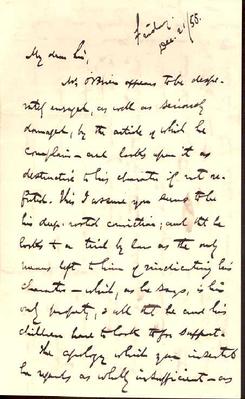 Friday
Dec. 21/55.
My dear Sir,
Mr O'Brien appears to be despe-
rately enraged, as well as seriously
damaged, by the article of which he
complains — and looks upon it as
destructive to his character if not re-
futed. This I assure you seems to be
his deep-rooted conviction; and that he
looks to a trial by law as the only
means left to him of vindicating his
character — which, as he says, is his
only property, & all that he and his
children have to look to for support.
The apology which you inserted
he regards as wholly insufficient — as